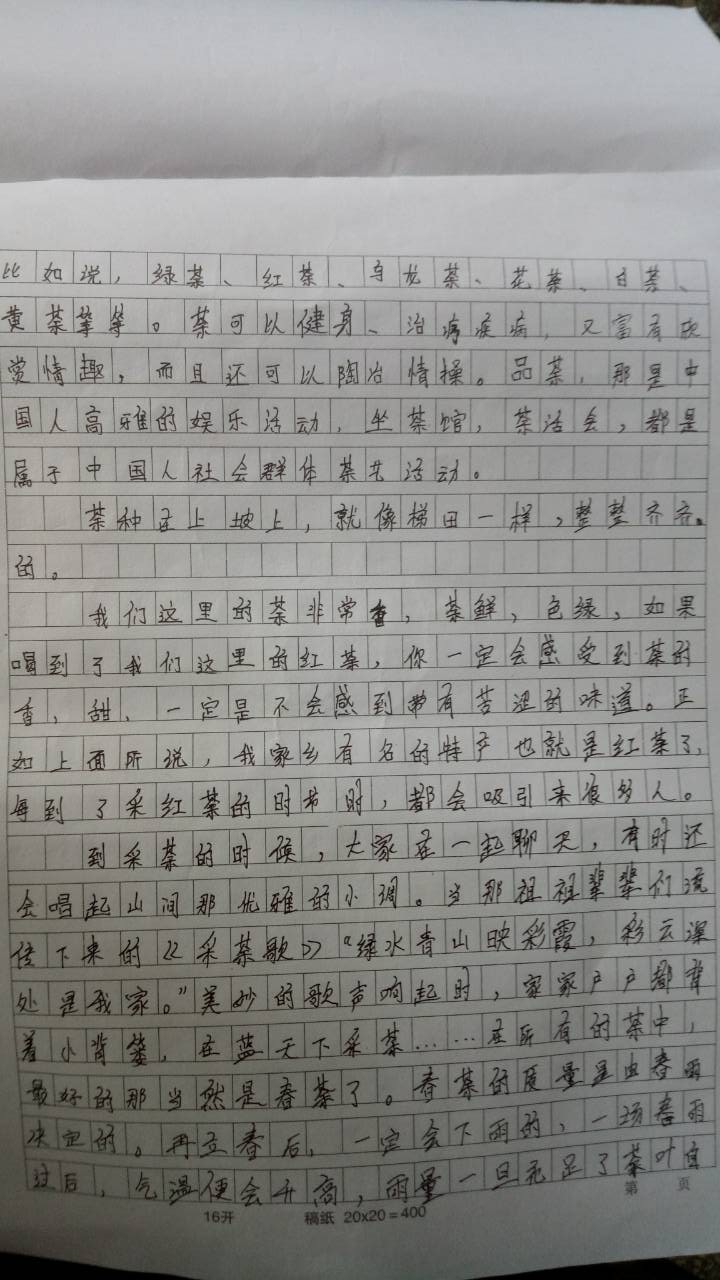 比如说，绿茶、红茶、乌龙茶、花茶、白茶、
黄茶等等。茶可以健身、治疗疾病，又富有欣
赏情趣，而且还可以陶冶情操。品茶，那是中
国人高雅的娱乐活动，坐茶馆，茶话会，都是
属于中国人社会群体茶艺活动。
茶种在上坡上，就像梯田一样，整整齐齐。
的。
我们这里的茶非常香，茶鲜，色绿，如果
喝到了我们这里的红茶，你一定会感受到茶的
香，甜，一定是不会感到带有苦涩的味道。正
如上面所说，我家乡有名的特产也就是红茶了，
每到了采红茶的时节时，都会吸引来很多人。
到采茶的时候，大家在一起聊天，有时还
会唱起山间那优雅的小调。当那祖祖辈辈们流
传下来的《采茶歌》“绿水青山映彩霞，彩云深
处是我家。”美妙的歌声响起时，家家户户都背
着小背篓，在蓝天下采茶……在所有的茶中，
最好的那当然是春茶了。春茶的质量是由春雨
决定的。再立春后，一定会下雨的，一场春雨
过后，气温便会升高，雨量一旦充足了茶叶自
第 页
16开 稿纸 20×20=400